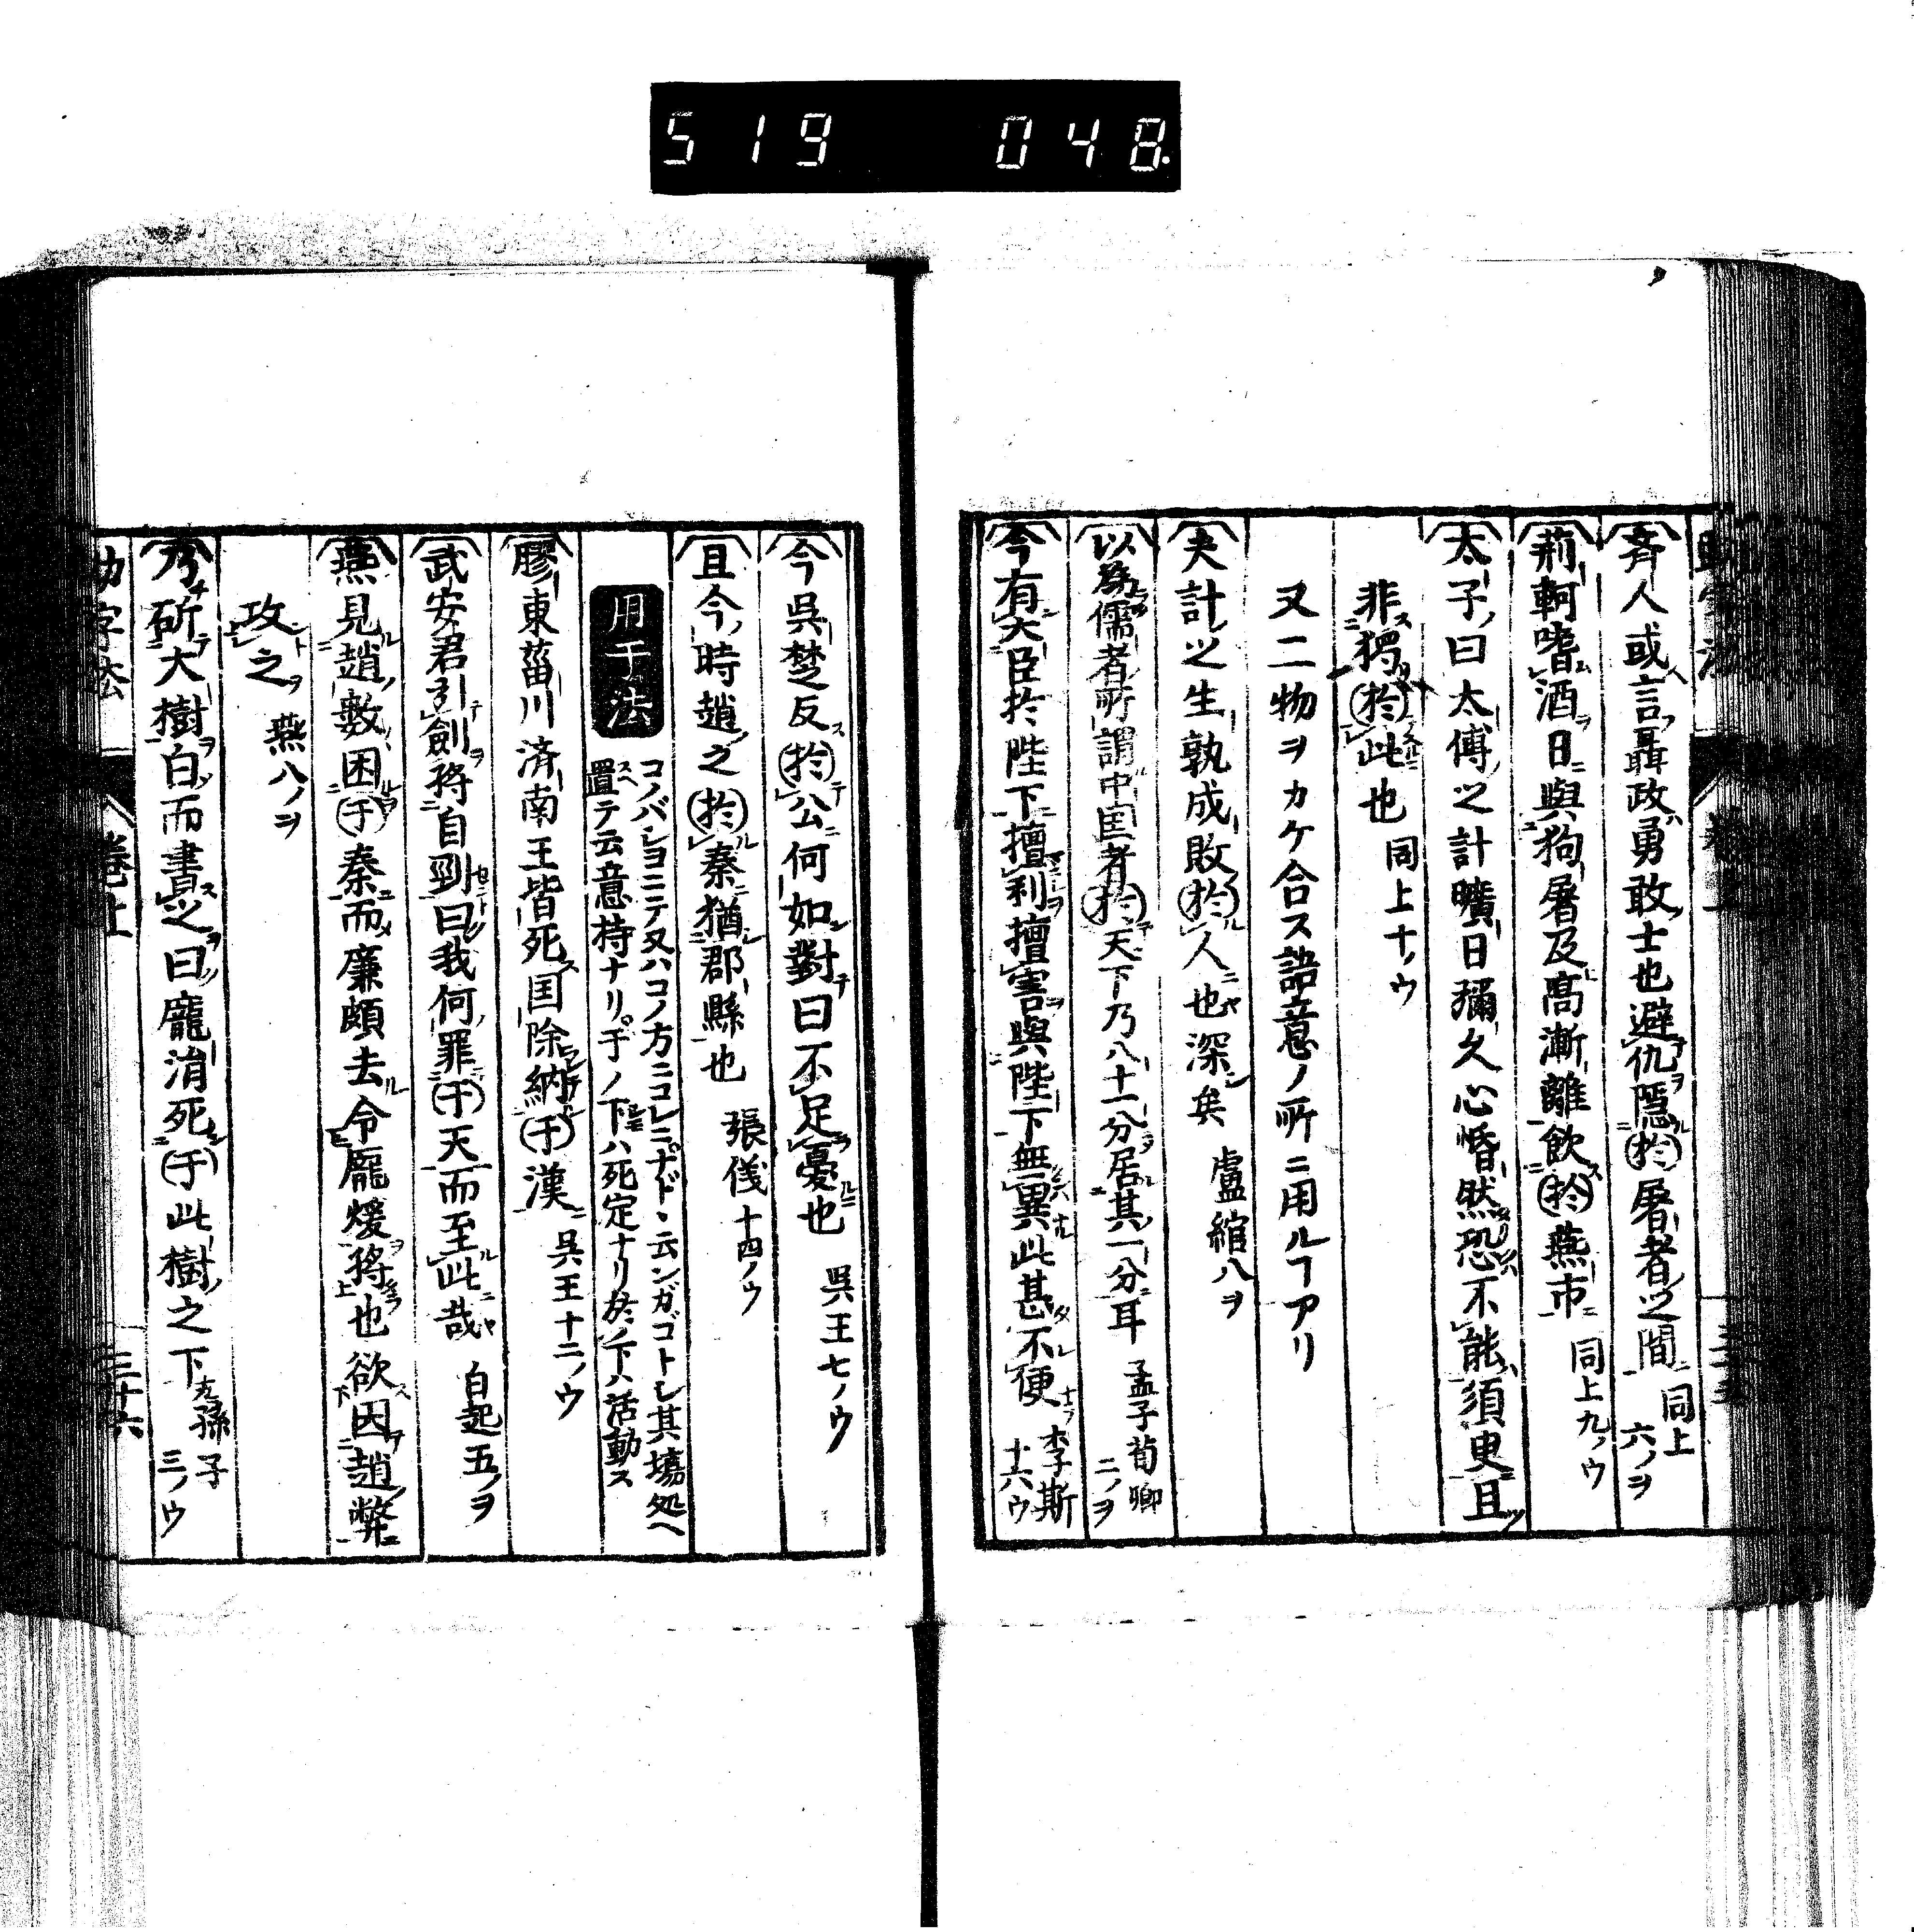 519 048
斉人或言聶政勇敢士也避仇隱於屠者之間 同上六ノヲ
荊軻嗜酒日與狗屠及髙漸離飲於燕市 同上九ノウ
太子曰太傅之計曠日彌久心惛然恐不能須臾且
非獨於此也 同上十ノウ
又二物ヲカケ合ス語意ノ所ニ用ルヿアリ
夫計之生孰成敗於人也深矣 盧綰八ヲ
以爲儒者所謂中国者於天下乃八十一分居其一分耳 孟子荀卿二ノヲ
今有大臣於陛下擅利擅害與陛下無異此甚不便 李斯十六ウ
今呉楚反於公何如對曰不足憂也 呉王七ノウ
且今時趙之於秦猶郡縣也 張儀十四ノウ
用于法
コノバシヨニテ又ハコノ方ニコレニナド云ンガゴトシ其塲処ヘ
置テ云意持ナリ于ノ下ハ死定ナリ於ノ下ハ活動ス
膠東菑川済南王皆死国除納于漢 呉王十二ノウ
武安君引劍将自剄曰我何罪于天而至此哉 白起五ノヲ
燕見趙數困于秦而廉頗去令龐煖将也欲因趙弊
攻之 燕八ノヲ
乃斫大樹白而書之曰龐涓死于此樹之下 孫子三ノウ
助字法 卷上 三十六